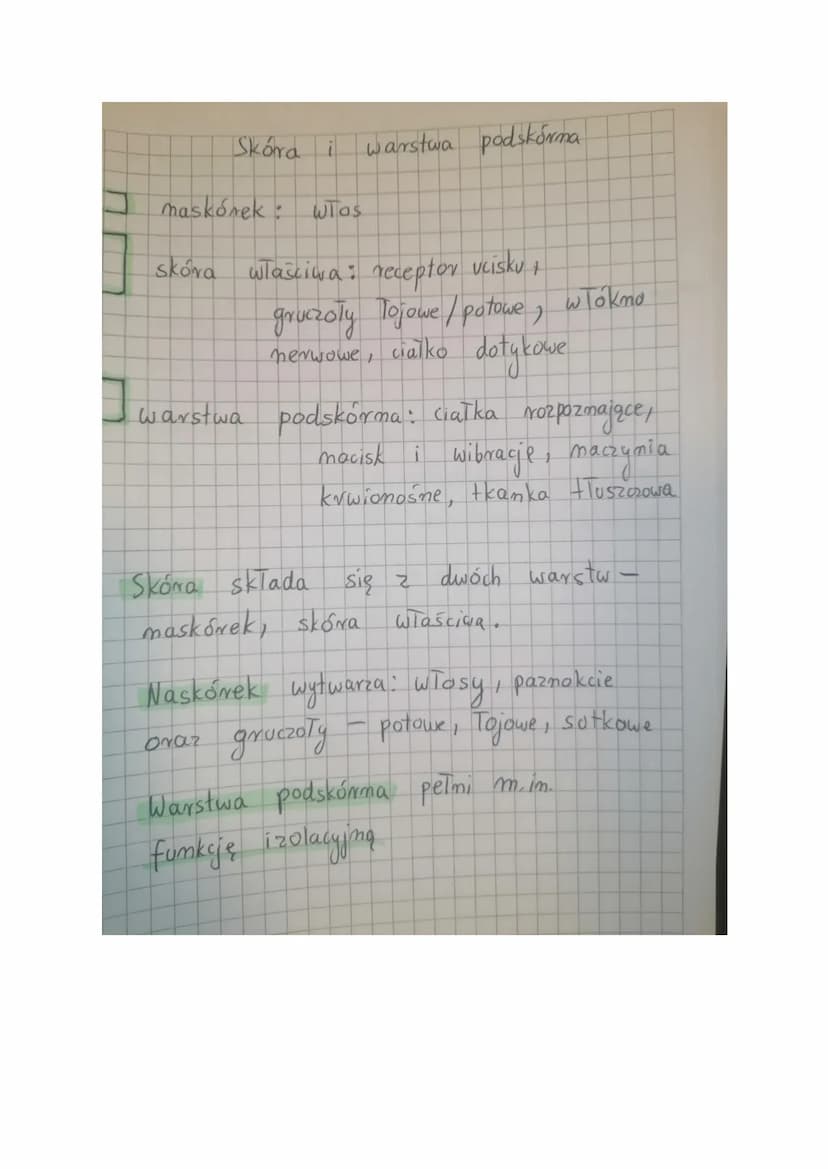 Skóra i warstwa podskórna
naskórek: włos
skóra właściwa: receptor ucisku,
gruczoły łojowe/potowe, włókna
nerwowe, ciałko dotykowe
warstwa podskórna: ciałka rozpoznające,
nacisk i wibracje, naczynia
krwionośne, tkanka tłuszczowa
Skóra składa się z dwóch warstw -
naskórek, skóra właściwa.
Naskórek wytwarza: włosy, paznokcie
oraz gruczoły - potowe, łojowe, sutkowe
Warstwa podskórna pełni m.in.
funkcję izolacyjną